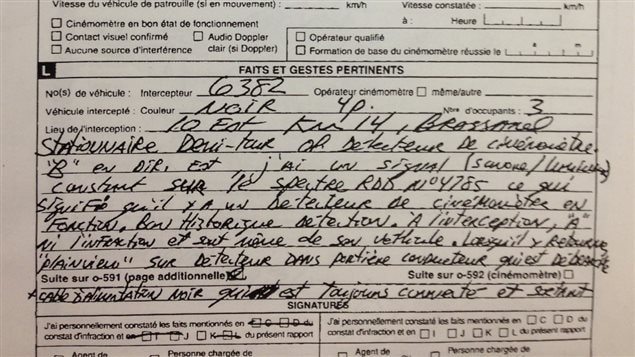 Vitesse du véhicule de patrouille (si en mouvement) : km/h Vitesse constatée : km/h
Cinémomètre en bon état de fonctionnement à : Heure
Contact visuel confirmé Audio Doppler Opérateur qualifié
Aucune source d'interférence clair (si Doppler) Formation de base du cinémomètre réussie le a m
L FAITS ET GESTES PERTINENTS
No(s) de véhicule : Intercepteur 6382 Opérateur cinémomètre même/autre
Véhicule intercepté : Couleur NOIR 4p. Nbre d'occupants : 3
Lieu de l'interception : 10 EST Km 14, BROSSARD
STATIONNAIRE Demi-tour OP DETECTEUR DE CINÉMOMÈTRE.
"B" EN DIR. EST, j'ai un SIGNAL (sonore/lumineux)
CONSTANT SUR le SPECTRE RDD No 4785 ce qui
SIGNIFIE qu'il Y A UN DETECTEUR DE CINÉMOMÈTRE EN
FONCTION. BON HISTORIQUE DÉTECTION. A l'INTERCEPTION, "A"
NI l'INFRACTION ET SORT même de son véhicule. LORSQU'IL Y RETOURNE
"PLAINVIEW" SUR DETECTEUR DANS PORTIÈRE CONDUCTEUR qui EST
Suite sur o-591 (page additionnelle) Suite sur o-592 (cinémomètre)
CABLE D'ALIMENTATION NOIR qui est toujours connecté et
SIGNATURES
J'ai personnellement constaté les faits mentionnés en C D du J'ai personnellement constaté les faits mentionnés en C D
constat d'infraction et en I J K L du présent rapport constat d'infraction et en I J K L du présent
Agent de Personne chargée de Agent de Personne chargée